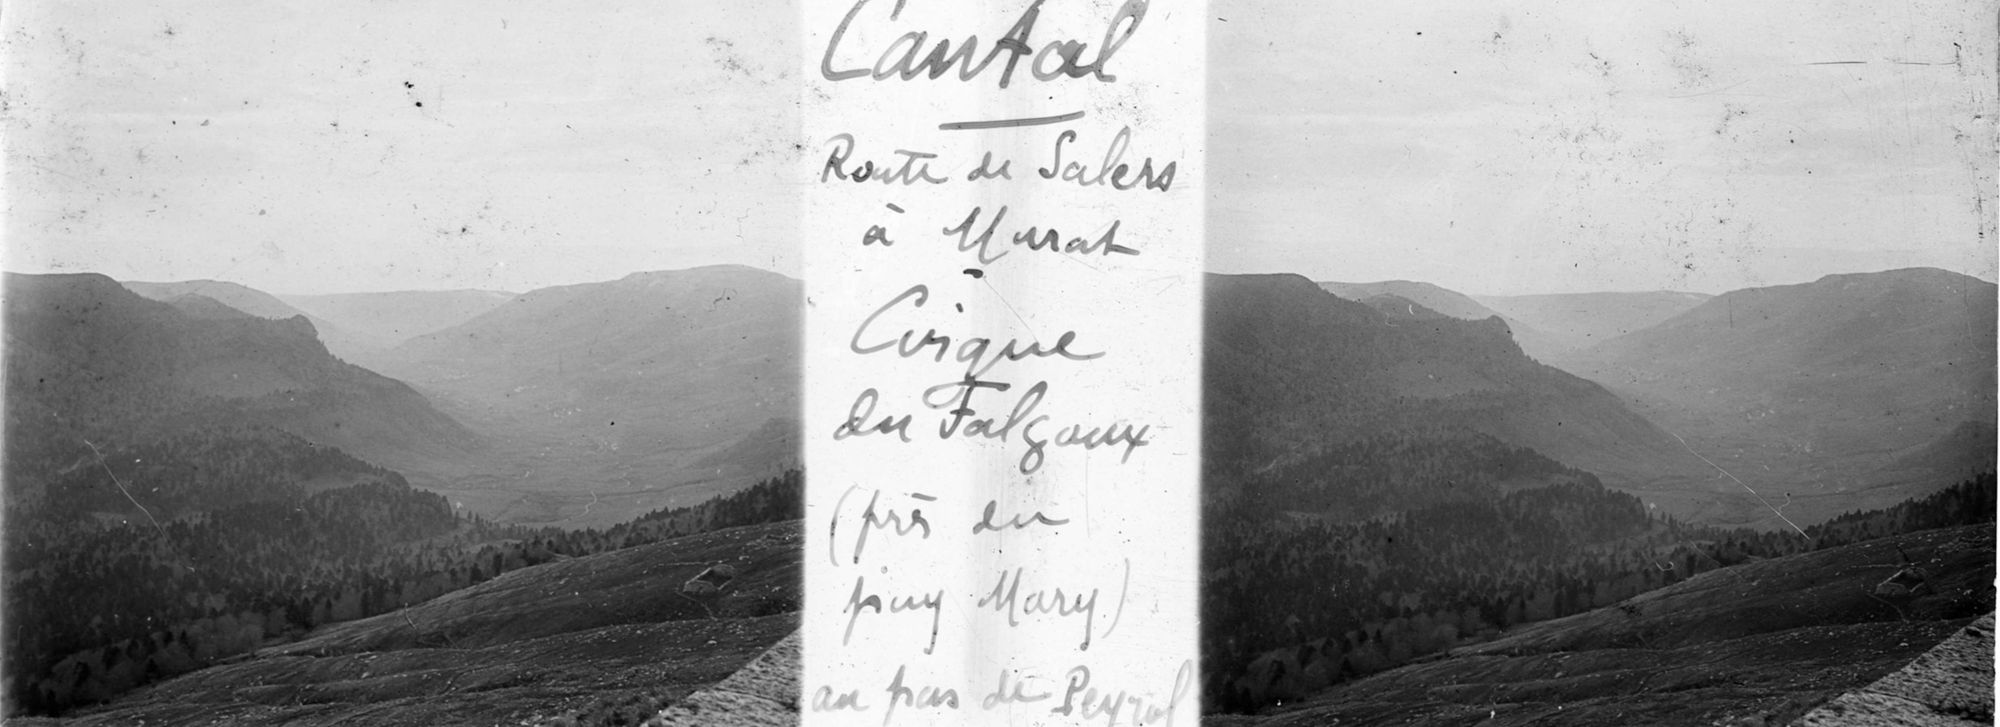 Cantal
Route de Salers
à Murat
Cirque
du Falgoux
(près du
puy Mary)
au pas de Peyrol